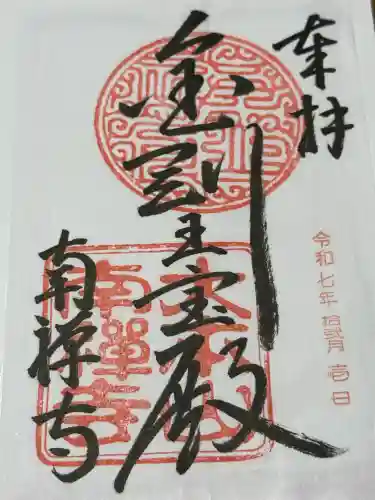 奉拝
令和七年拾弐月壱日
金剛王宝殿
南禅寺